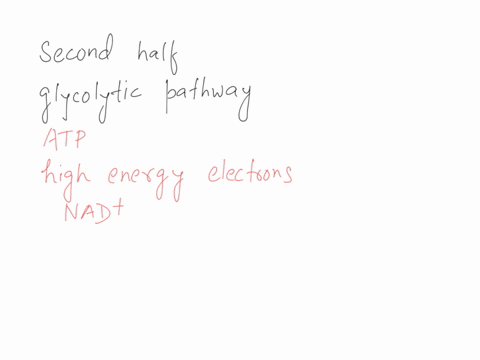 Second half
glycolytic pathway
ATP
high energy electrons
NAD+